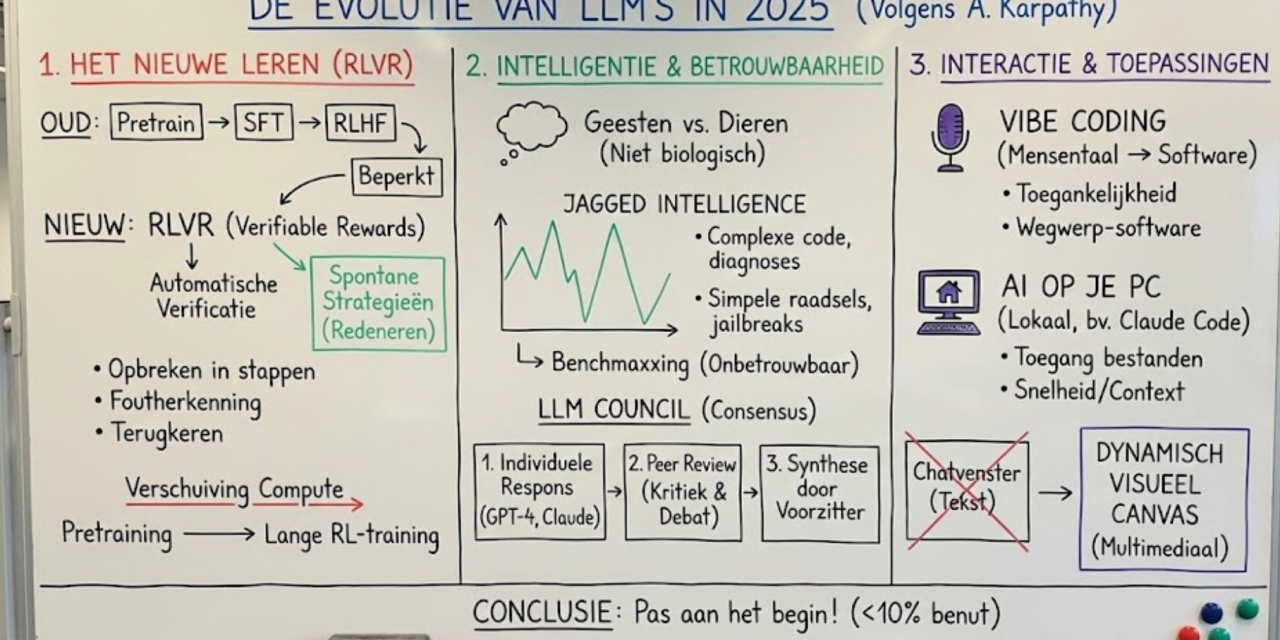 DE EVOLUTIE VAN LLM'S IN 2025 (Volgens A. Karpathy)
1. HET NIEUWE LEREN (RLVR)
OUD: Pretrain → SFT → RLHF
Beperkt
NIEUW: RLVR (Verifiable Rewards)
Automatische
Verificatie
Spontane
Strategieën
(Redeneren)
• Opbreken in stappen
• Foutherkenning
• Terugkeren
Verschuiving Compute
Pretraining → Lange RL-training
2. INTELLIGENTIE & BETROUWBAARHEID
Geesten vs. Dieren
(Niet biologisch)
JAGGED INTELLIGENCE
• Complexe code,
diagnoses
• Simpele raadsels,
jailbreaks
Benchmaxxing (Onbetrouwbaar)
LLM COUNCIL (Consensus)
1. Individuele
Respons
(GPT-4, Claude)
2. Peer Review
(Kritiek &
Debat)
3. Synthese
door
Voorzitter
3. INTERACTIE & TOEPASSINGEN
VIBE CODING
(Mensentaal → Software)
• Toegankelijkheid
• Wegwerp-software
AI OP JE PC
(Lokaal, bv. Claude Code)
• Toegang bestanden
• Snelheid/Context
Chatvenster
(Tekst)
DYNAMISCH
VISUEEL
CANVAS
(Multimediaal)
CONCLUSIE: Pas aan het begin! (<10% benut)